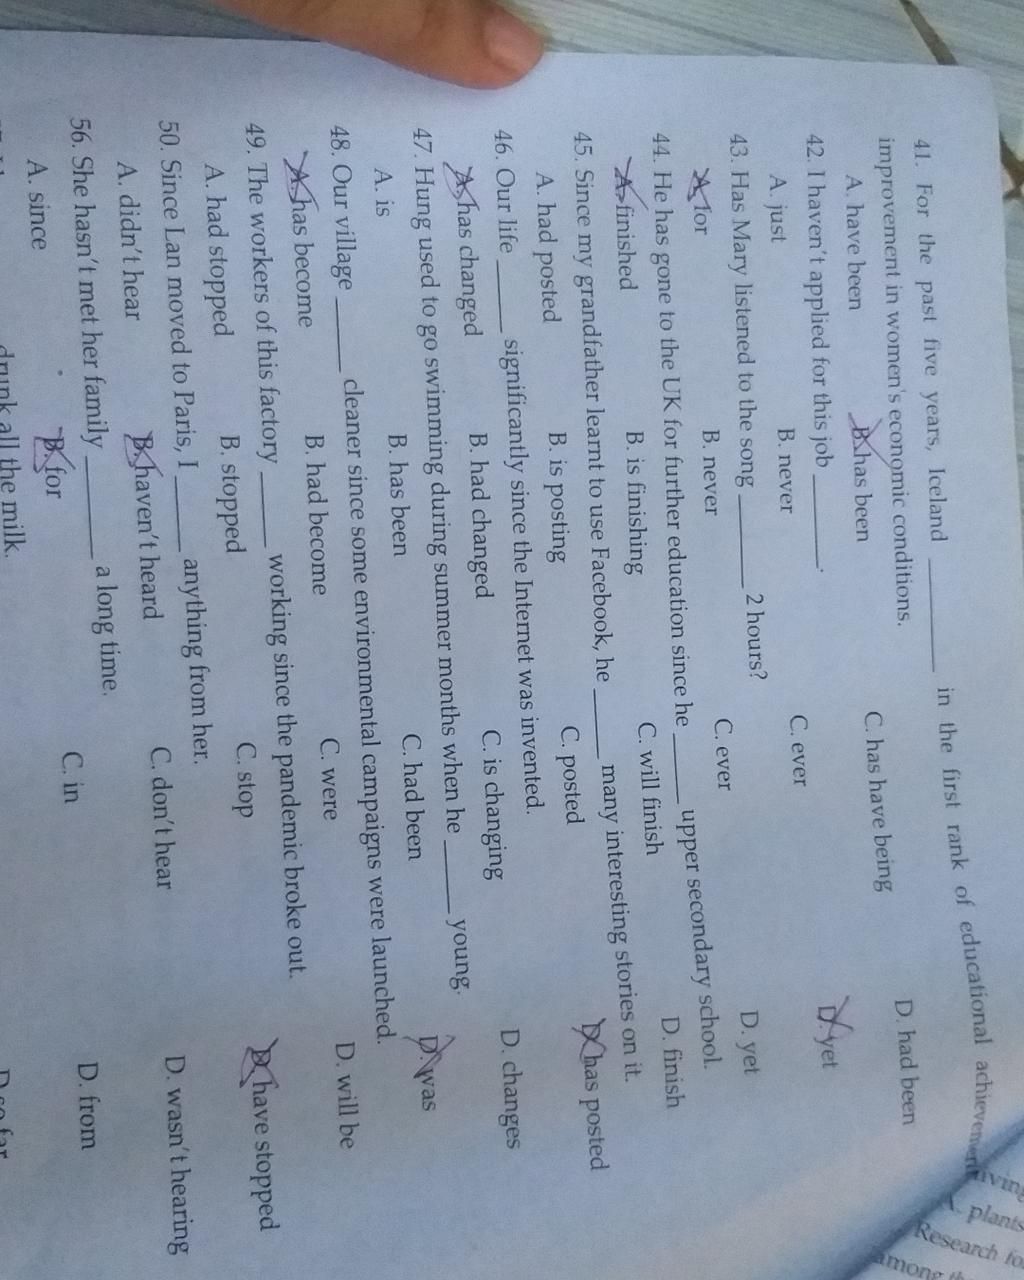 41. For the past five years, Iceland ________ in the first rank of educational achievement
improvement in women's economic conditions.
A. have been B. has been C. has have being D. had been
42. I haven't applied for this job ________.
A. just B. never C. ever D. yet
43. Has Mary listened to the song ________ 2 hours?
A. for B. never C. ever D. yet
44. He has gone to the UK for further education since he ______ upper secondary school.
A. finished B. is finishing C. will finish D. finish
45. Since my grandfather learnt to use Facebook, he ______ many interesting stories on it.
A. had posted B. is posting C. posted D. has posted
46. Our life ______ significantly since the Internet was invented.
A. has changed B. had changed C. is changing D. changes
47. Hung used to go swimming during summer months when he ______ young.
A. is B. has been C. had been D. was
48. Our village ______ cleaner since some environmental campaigns were launched.
A. has become B. had become C. were D. will be
49. The workers of this factory ______ working since the pandemic broke out.
A. had stopped B. stopped C. stop D. have stopped
50. Since Lan moved to Paris, I ______ anything from her.
A. didn't hear B. haven't heard C. don't hear D. wasn't hearing
56. She hasn't met her family ________ a long time.
A. since B. for C. in D. from
drunk all the milk.
D. so far
plants
Research
among